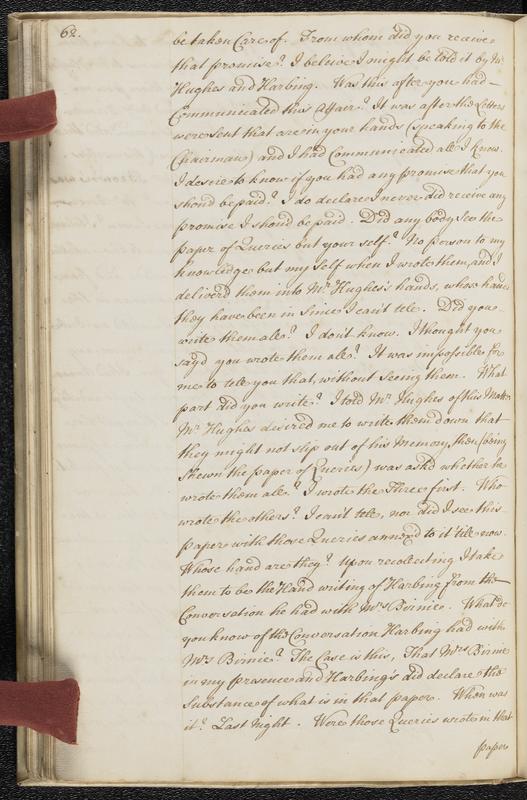 62.
be taken Care of. From whom did you receive
that promise? I beleive I might be told it by Mr
Hughes and Harbing. Was this after you had
Communicated this Affair? It was after the Letters
were sent that are in your hands (speaking to the
Chairman) and I had Communicated all I know.
I desire to know if you had any promise that you
shoud be paid? I do declare I never did receive any
promise I shoud be paid. Did any body See the
paper of Queries but your self? No person to my
knowledge but my self when I wrote them, and I
deliverd them into Mr Hughes's hands, whose hands
they have been in Since I can't tell. Did you
write them all? I don't know. I thought you
sayd you wrote them all? It was impossible for
me to tell you that, without Seeing them. What
part did you write? I told Mr Hughes of this Matter
Mr Hughes desired me to write them down that
they might not slip out of his Memory, then (being
Shewn the paper of Queries) was askd whether he
wrote them all? I wrote the Three first. Who
wrote the others? I can't tell, nor did I see this
paper with those Queries annexd to it 'till now.
Whose hand are they? Upon recollecting I take
them to be the Hand writing of Harbing from the
Conversation he had with Mrs Birnie. What do
you know of the Conversation Harbing had with
Mrs Birnie? The Case is this, That Mrs Birnie
in my presence and Harbing's did declare the
Substance of what is in that paper. When was
it? Last Night. Were those Queries wrote in that
paper